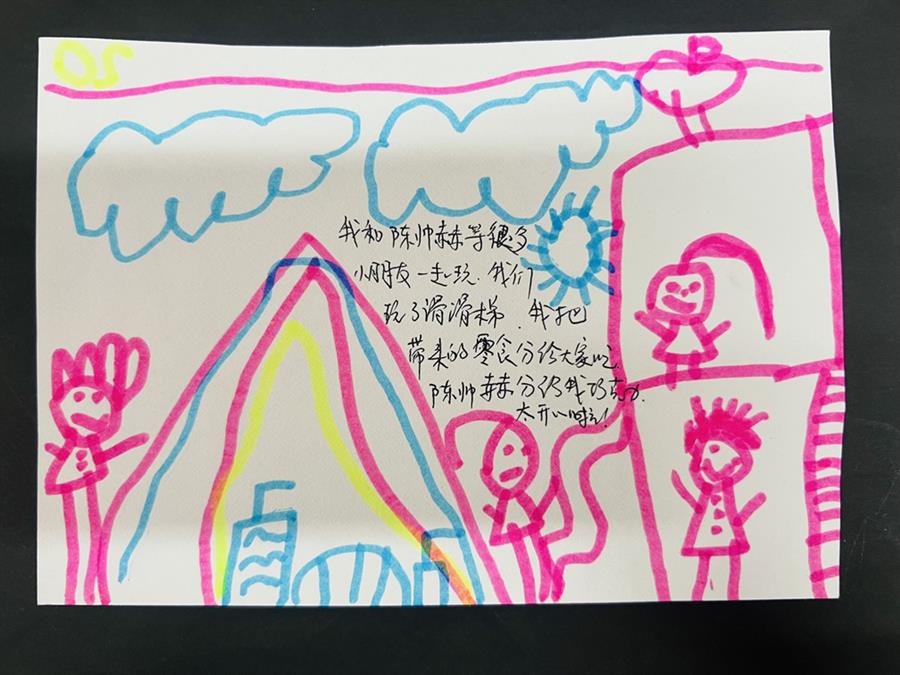 我和陈帅赫等很多
小朋友一起玩.我们
玩了滑滑梯.我把
带来的零食分给大家吃.
陈帅赫分给我巧克力.
太开心啦!